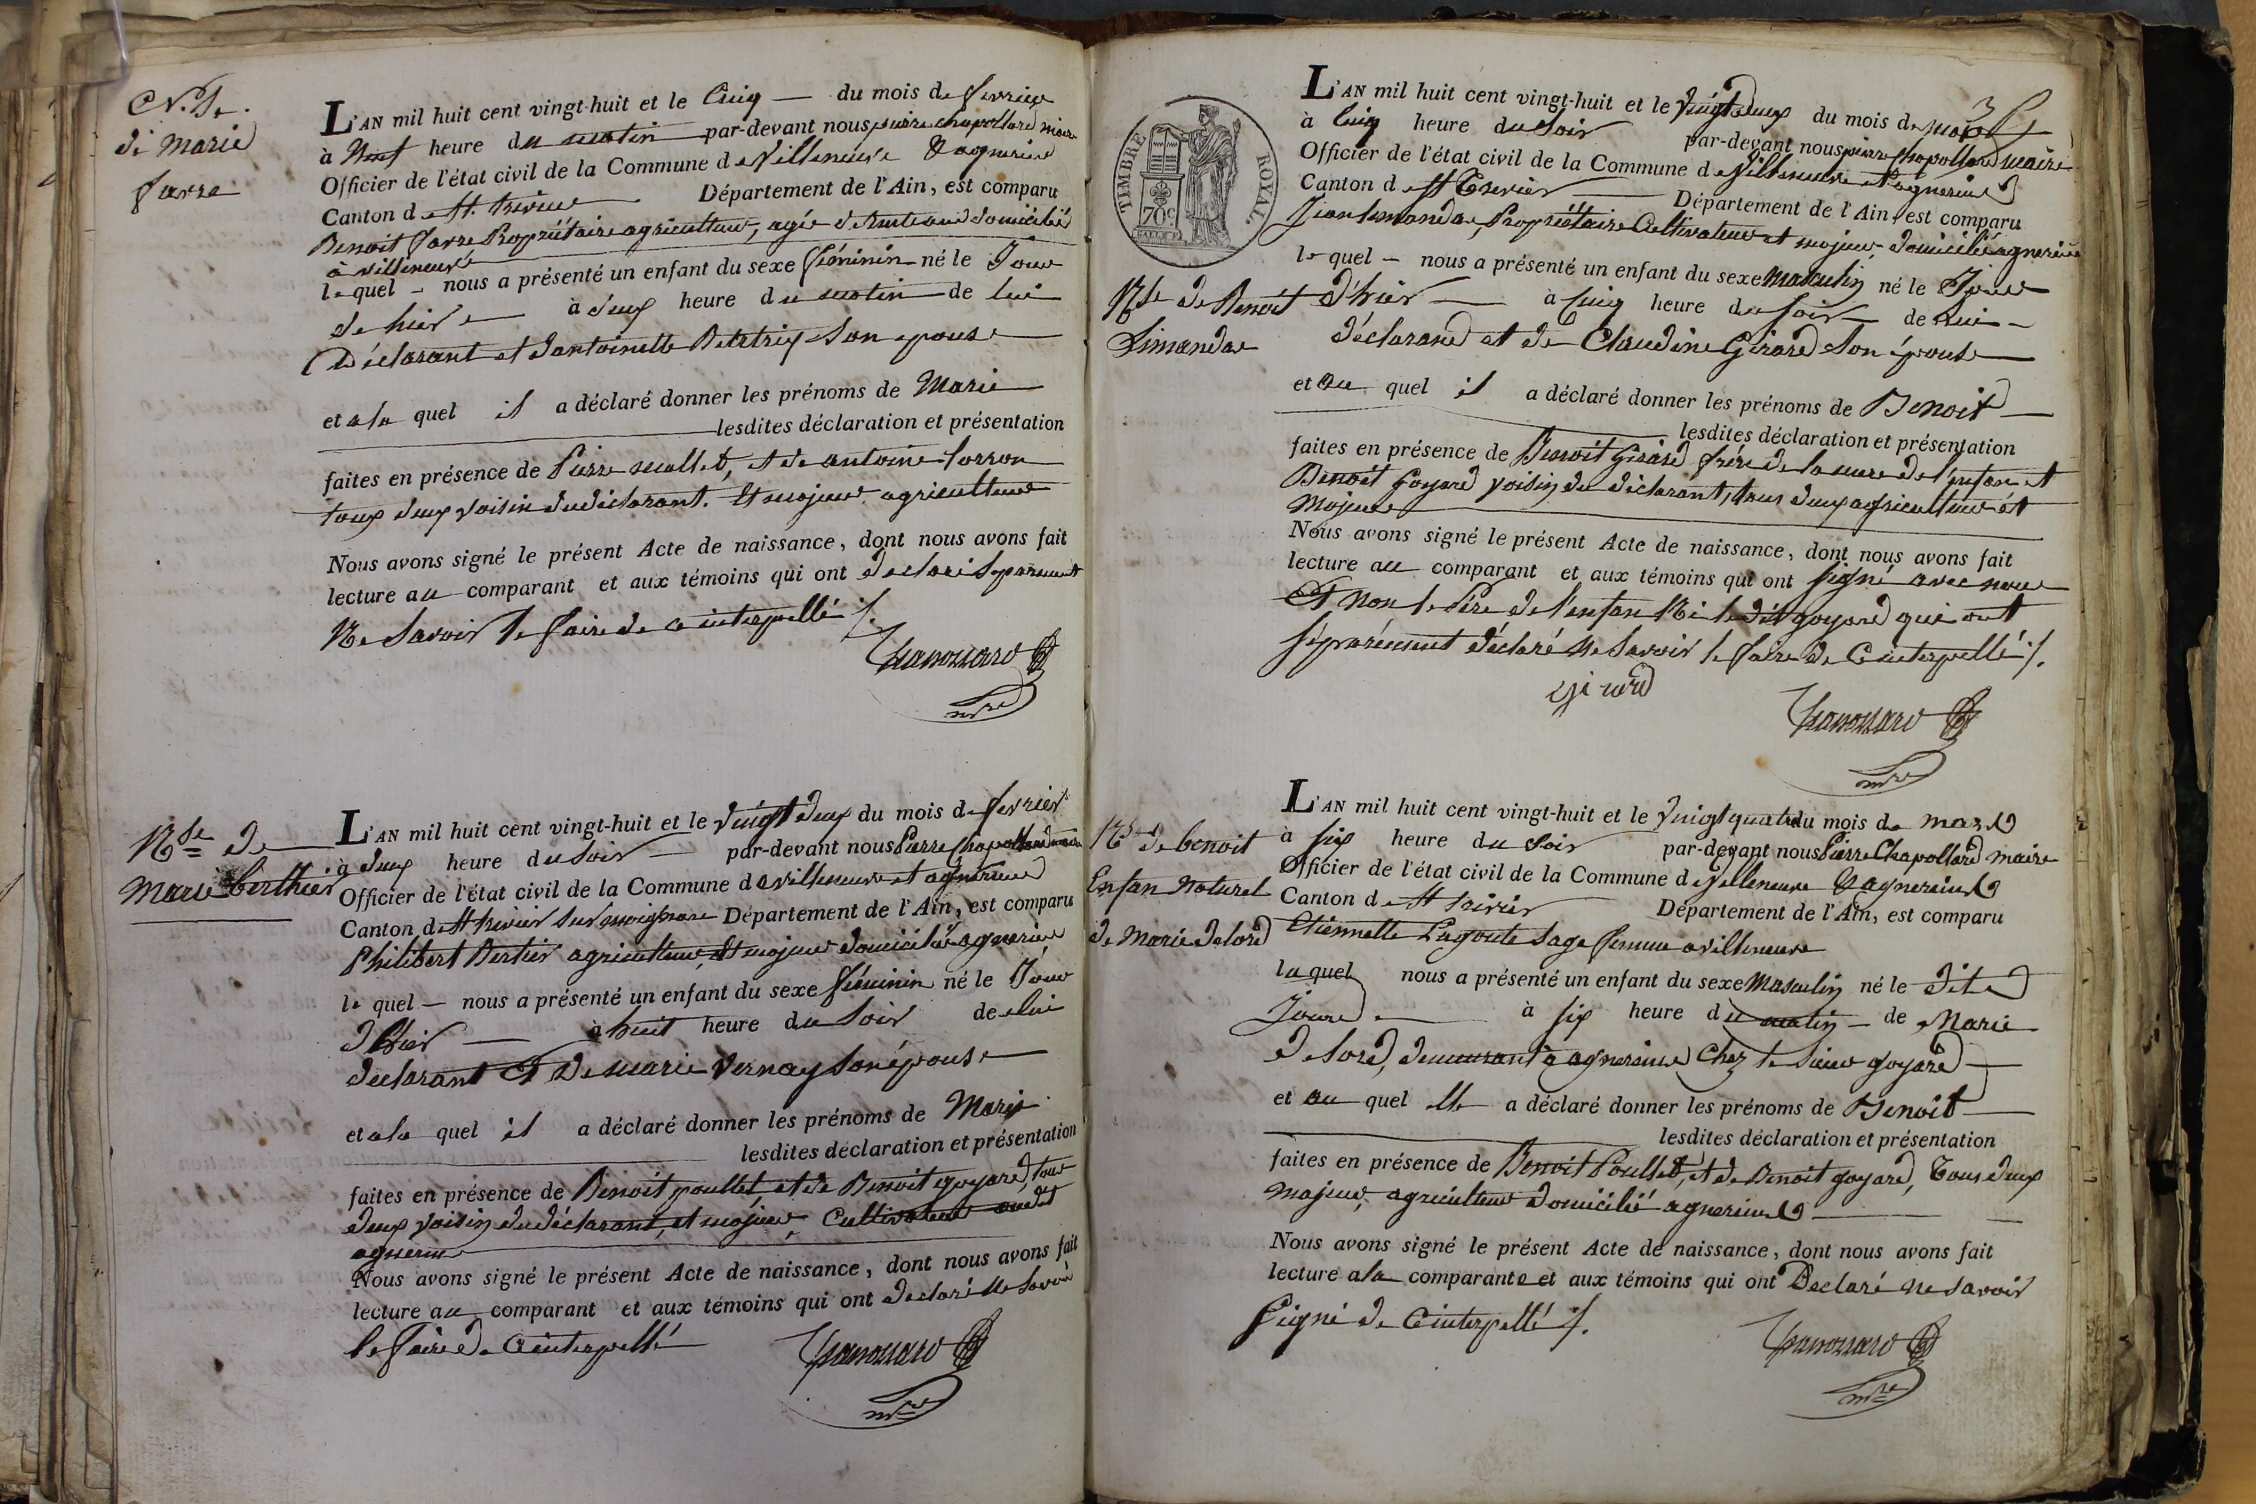 N.ce
de Marie
farre
L'AN mil huit cent vingt-huit et le Cinq du mois de fevrier
à heure du matin par-devant nous pierre chapollard maire
Officier de l'état civil de la Commune de Villeneuve & agnerins
Canton de St. trivier Département de l'Ain, est comparu
Benoit farre Propriétaire agriculteur, agée de trente ans domicilié
à villeneuve
lequel nous a présenté un enfant du sexe féminin né le Jour
de hier à deux heure du matin de lui
Déclarant et dantoinette Betrix son epouse
et a la quel il a déclaré donner les prénoms de Marie
lesdites déclaration et présentation
faites en présence de Pierre mallet, et de antoine forron
toux deux voisin du déclarant. Et majeur agriculteur
Nous avons signé le présent Acte de naissance, dont nous avons fait
lecture au comparant et aux témoins qui ont declaré séparément
Ne Savoir le faire de ce interpellé ./.
Chapollard
mre
N.ce de
Marie berthier
L'AN mil huit cent vingt-huit et le vingt deux du mois de fevrier
à deux heure du Soir par-devant nous Pierre Chapollard maire
Officier de l'état civil de la Commune de villeneuve et agnereins
Canton de St trivier sur moignans Département de l'Ain, est comparu
Philibert Bertier agriculteur, Et majeur domicilié agnerins
lequel nous a présenté un enfant du sexe féminin né le Jour
d'hier à huit heure du Soir de lui
declarant Et de marie Vernay son épouse
et a la quel il a déclaré donner les prénoms de Marie
lesdites déclaration et présentation
faites en présence de Benoit poullet et de Benoit goyard, tous
deux voisin du déclarant, et majeur, Cultivateur audit
agnerins
Nous avons signé le présent Acte de naissance, dont nous avons fait
lecture au comparant et aux témoins qui ont declaré Ne Savoir
le faire de Ce interpellé
Chapollard
mre
TIMBRE ROYAL
70c
3
L'AN mil huit cent vingt-huit et le Vingt deux du mois de mars
à Cinq heure du Soir par-devant nous pierre Chapollard maire
Officier de l'état civil de la Commune de Villeneuve et agnerins
Canton de St Trivier Département de l'Ain, est comparu
Jean limandas, Propriétaire Cultivateur et majeur, domicilié agnerins
lequel nous a présenté un enfant du sexe Masculin né le Jour
N.ce de Benoit
Limandas
d'hier à Cinq heure du Soir de lui
déclarand et de Claudine Girard Son épouse
et au quel il a déclaré donner les prénoms de Benoit
lesdites déclaration et présentation
faites en présence de Benoit Girard frère de la mere de l'enfan et
Benoit Goyard voisin du déclarant, tous deux agriculteur et
Majeur
Nous avons signé le présent Acte de naissance, dont nous avons fait
lecture au comparant et aux témoins qui ont Signé avec nous
Et non le Père de l'enfan Ni le dit goyard qui ont
séparément déclaré Ne Savoir le faire de Ce interpellé ./.
girard
Chapollard
mre
N.ce de benoit
Enfan Naturel
de Marie delord
L'AN mil huit cent vingt-huit et le Vuigt quatre du mois de mars
à six heure du Soir par-devant nous Pierre Chapollard maire
Officier de l'état civil de la Commune de Villeneuve & agnereins
Canton de St trivier Département de l'Ain, est comparu
Etiennette Lagoute Sage femme a villeneuve
laquel nous a présenté un enfant du sexe Masculin né le dit
Jour à six heure du matin de Marie
delord, demeurant à agnereins Chez le Sieur goyard
et au quel elle a déclaré donner les prénoms de Benoit
lesdites déclaration et présentation
faites en présence de Benoit Poullet, et de Benoit goyard, Tous deux
majeur, agriculteur domicilié agnerins
Nous avons signé le présent Acte de naissance, dont nous avons fait
lecture a la comparante et aux témoins qui ont Declaré ne savoir
Signé de Ce interpellé ./.
Chapollard
mre